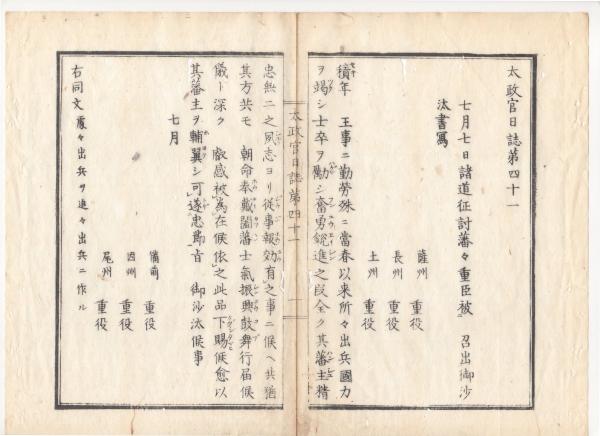 太政官日誌第四十一
七月七日諸道征討藩々重臣被　召出御沙
汰書寫
薩州　重役
長州　重役
土州　重役
積年　王事ニ勤勞殊ニ當春以来所々出兵國力
ヲ竭シ士卒ヲ勵シ奮勇鋭進之段全ク其藩主精
太政官日誌第四十一　一
忠無二之夙志ヨリ従事報効有之事ニ候ヘ共猶
其方共モ　朝命奉戴闔藩士氣振興鼓舞行届候
儀ト深ク　叡感被為在候依之此品下賜候愈以
其藩主ヲ輔翼シ可遂忠節旨　御沙汰候事
七月
備前　重役
因州　重役
尾州　重役
右同文處々出兵ヲ追々出兵ニ作ル